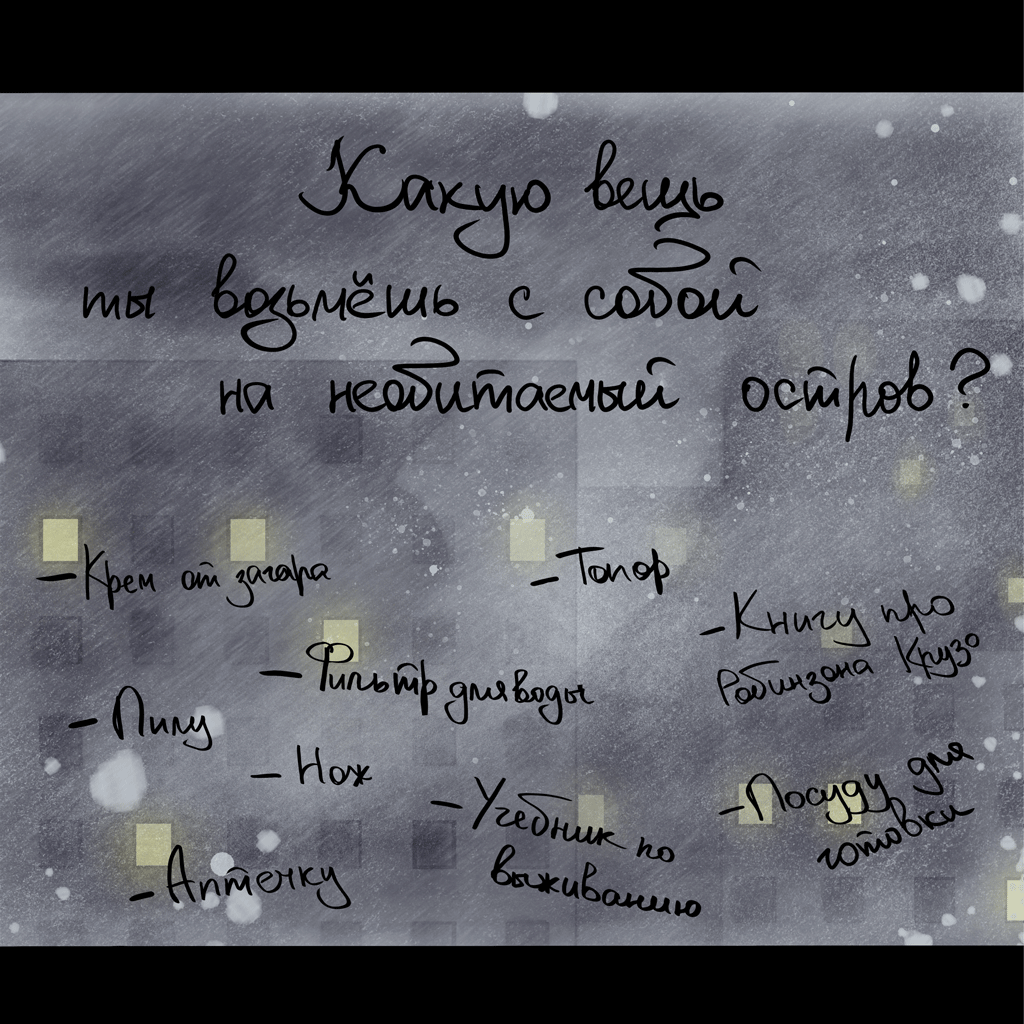 Какую вещь
ты возьмёшь с собой
на необитаемый остров?
- Крем от загара
- Топор
- Книгу про
Робинзона Крузо
- Фильтр для воды
- Пилу
- Нож
- Учебник по
выживанию
- Посуду для
готовки
- Аптечку